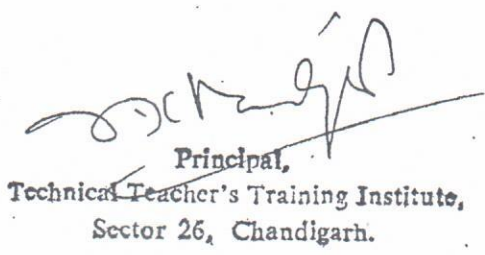 Principal,
Technical Teacher's Training Institute,
Sector 26, Chandigarh.